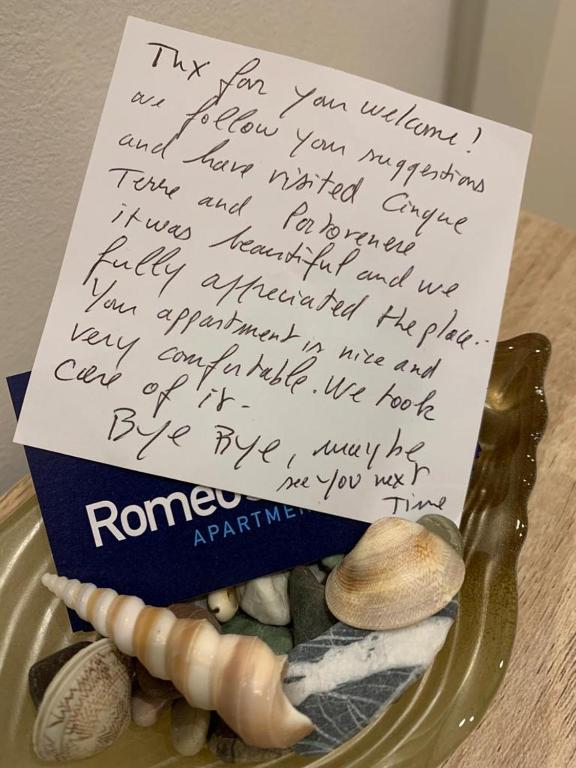 Thx for your welcome!
we follow your suggestions
and have visited Cinque
Terre and Portovenere
it was beautiful and we
fully appreciated the place..
Your appartment is nice and
very comfortable. We took
care of it-
Bye Bye, maybe
see you next
Time
Romeo
APARTME